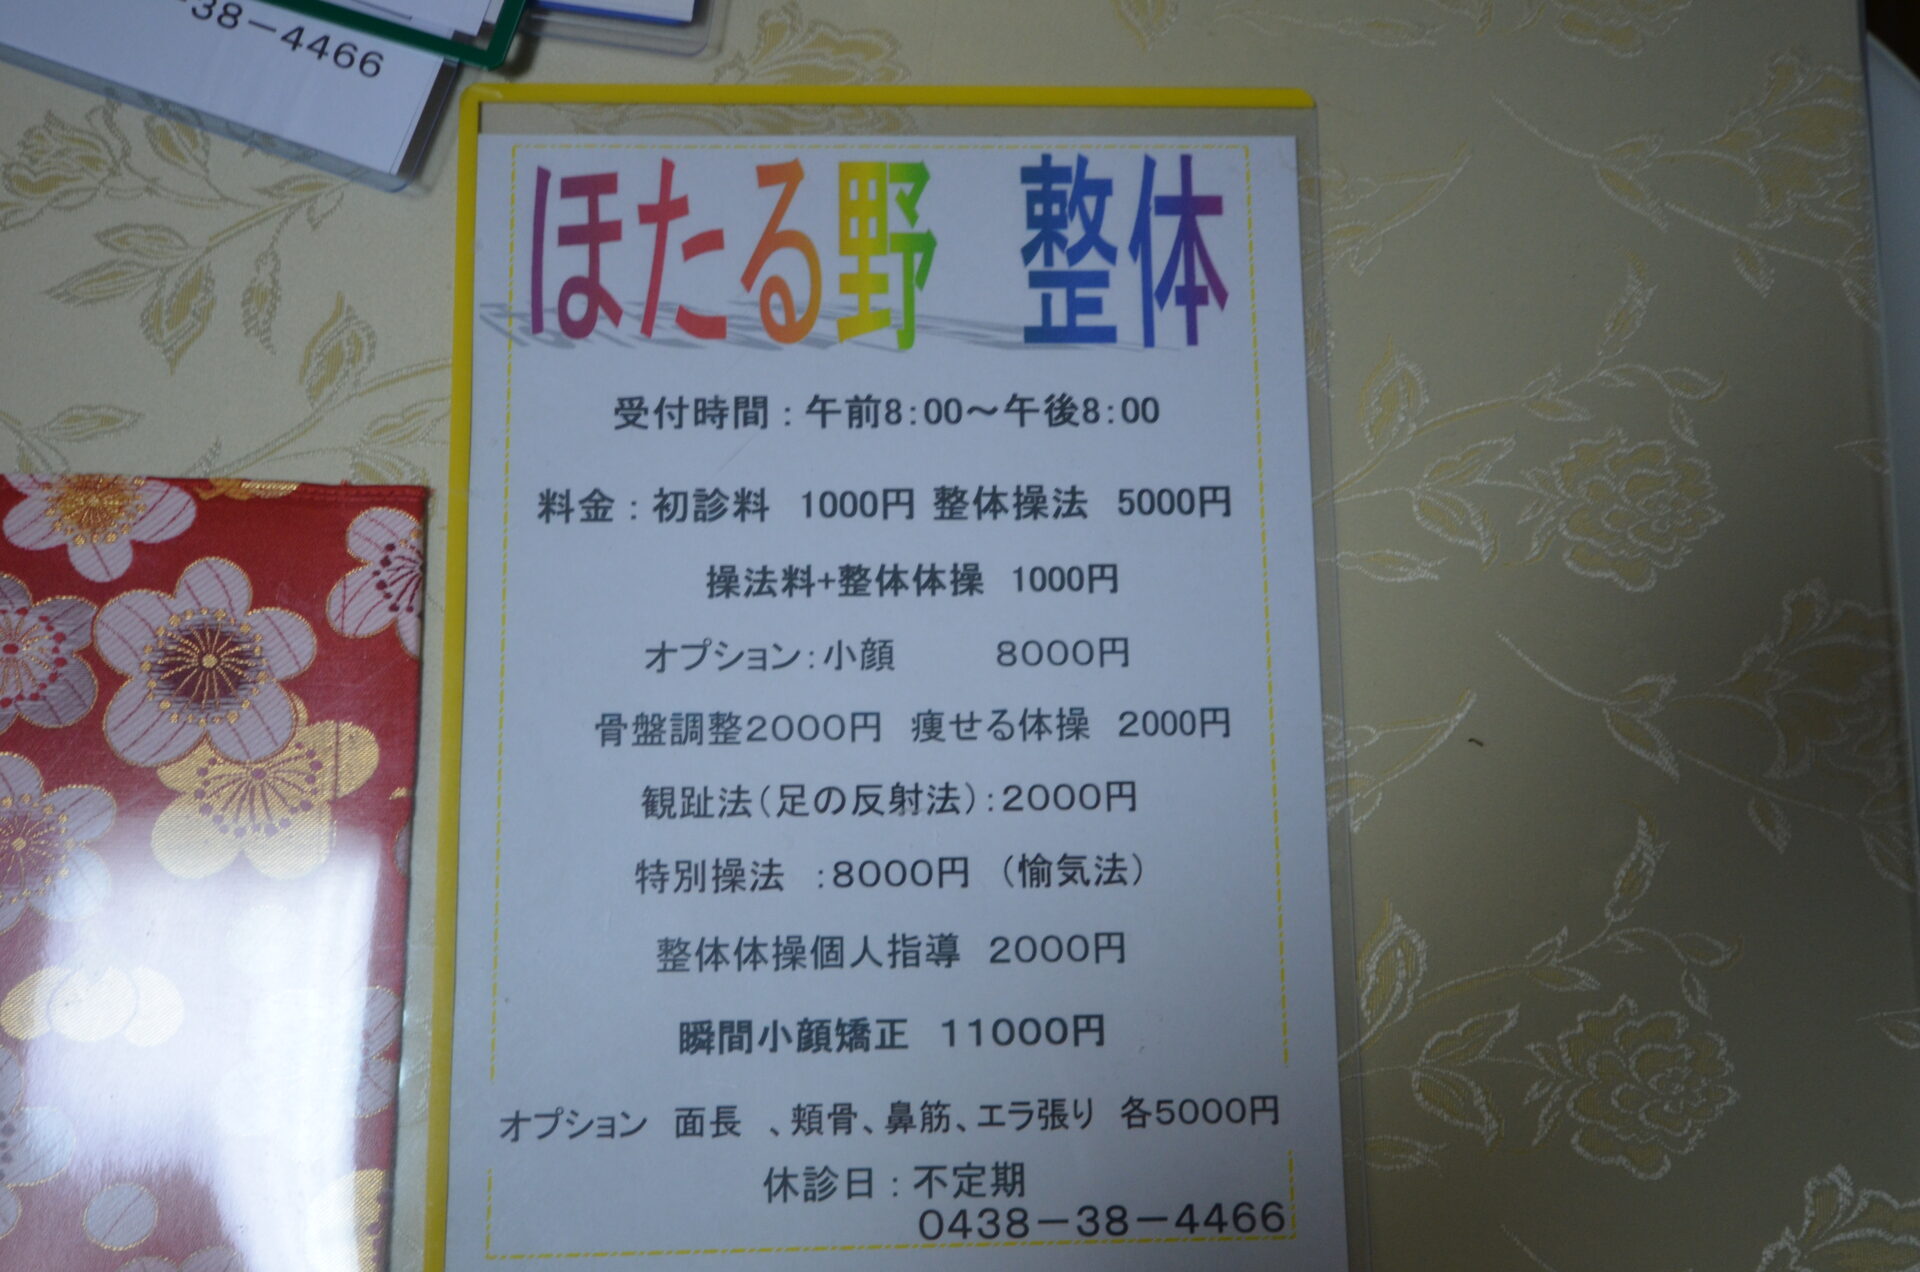 38－4466
ほたる野　整体
受付時間：午前8：00～午後8：00
料金：初診料　1000円 整体操法　5000円
操法料+整体体操　1000円
オプション：小顔　　　8000円
骨盤調整2000円　痩せる体操　2000円
観趾法（足の反射法）：2000円
特別操法　：8000円　（愉気法）
整体体操個人指導　2000円
瞬間小顔矯正　11000円
オプション　面長　、頬骨、鼻筋、エラ張り　各5000円
休診日：不定期
0438－38－4466